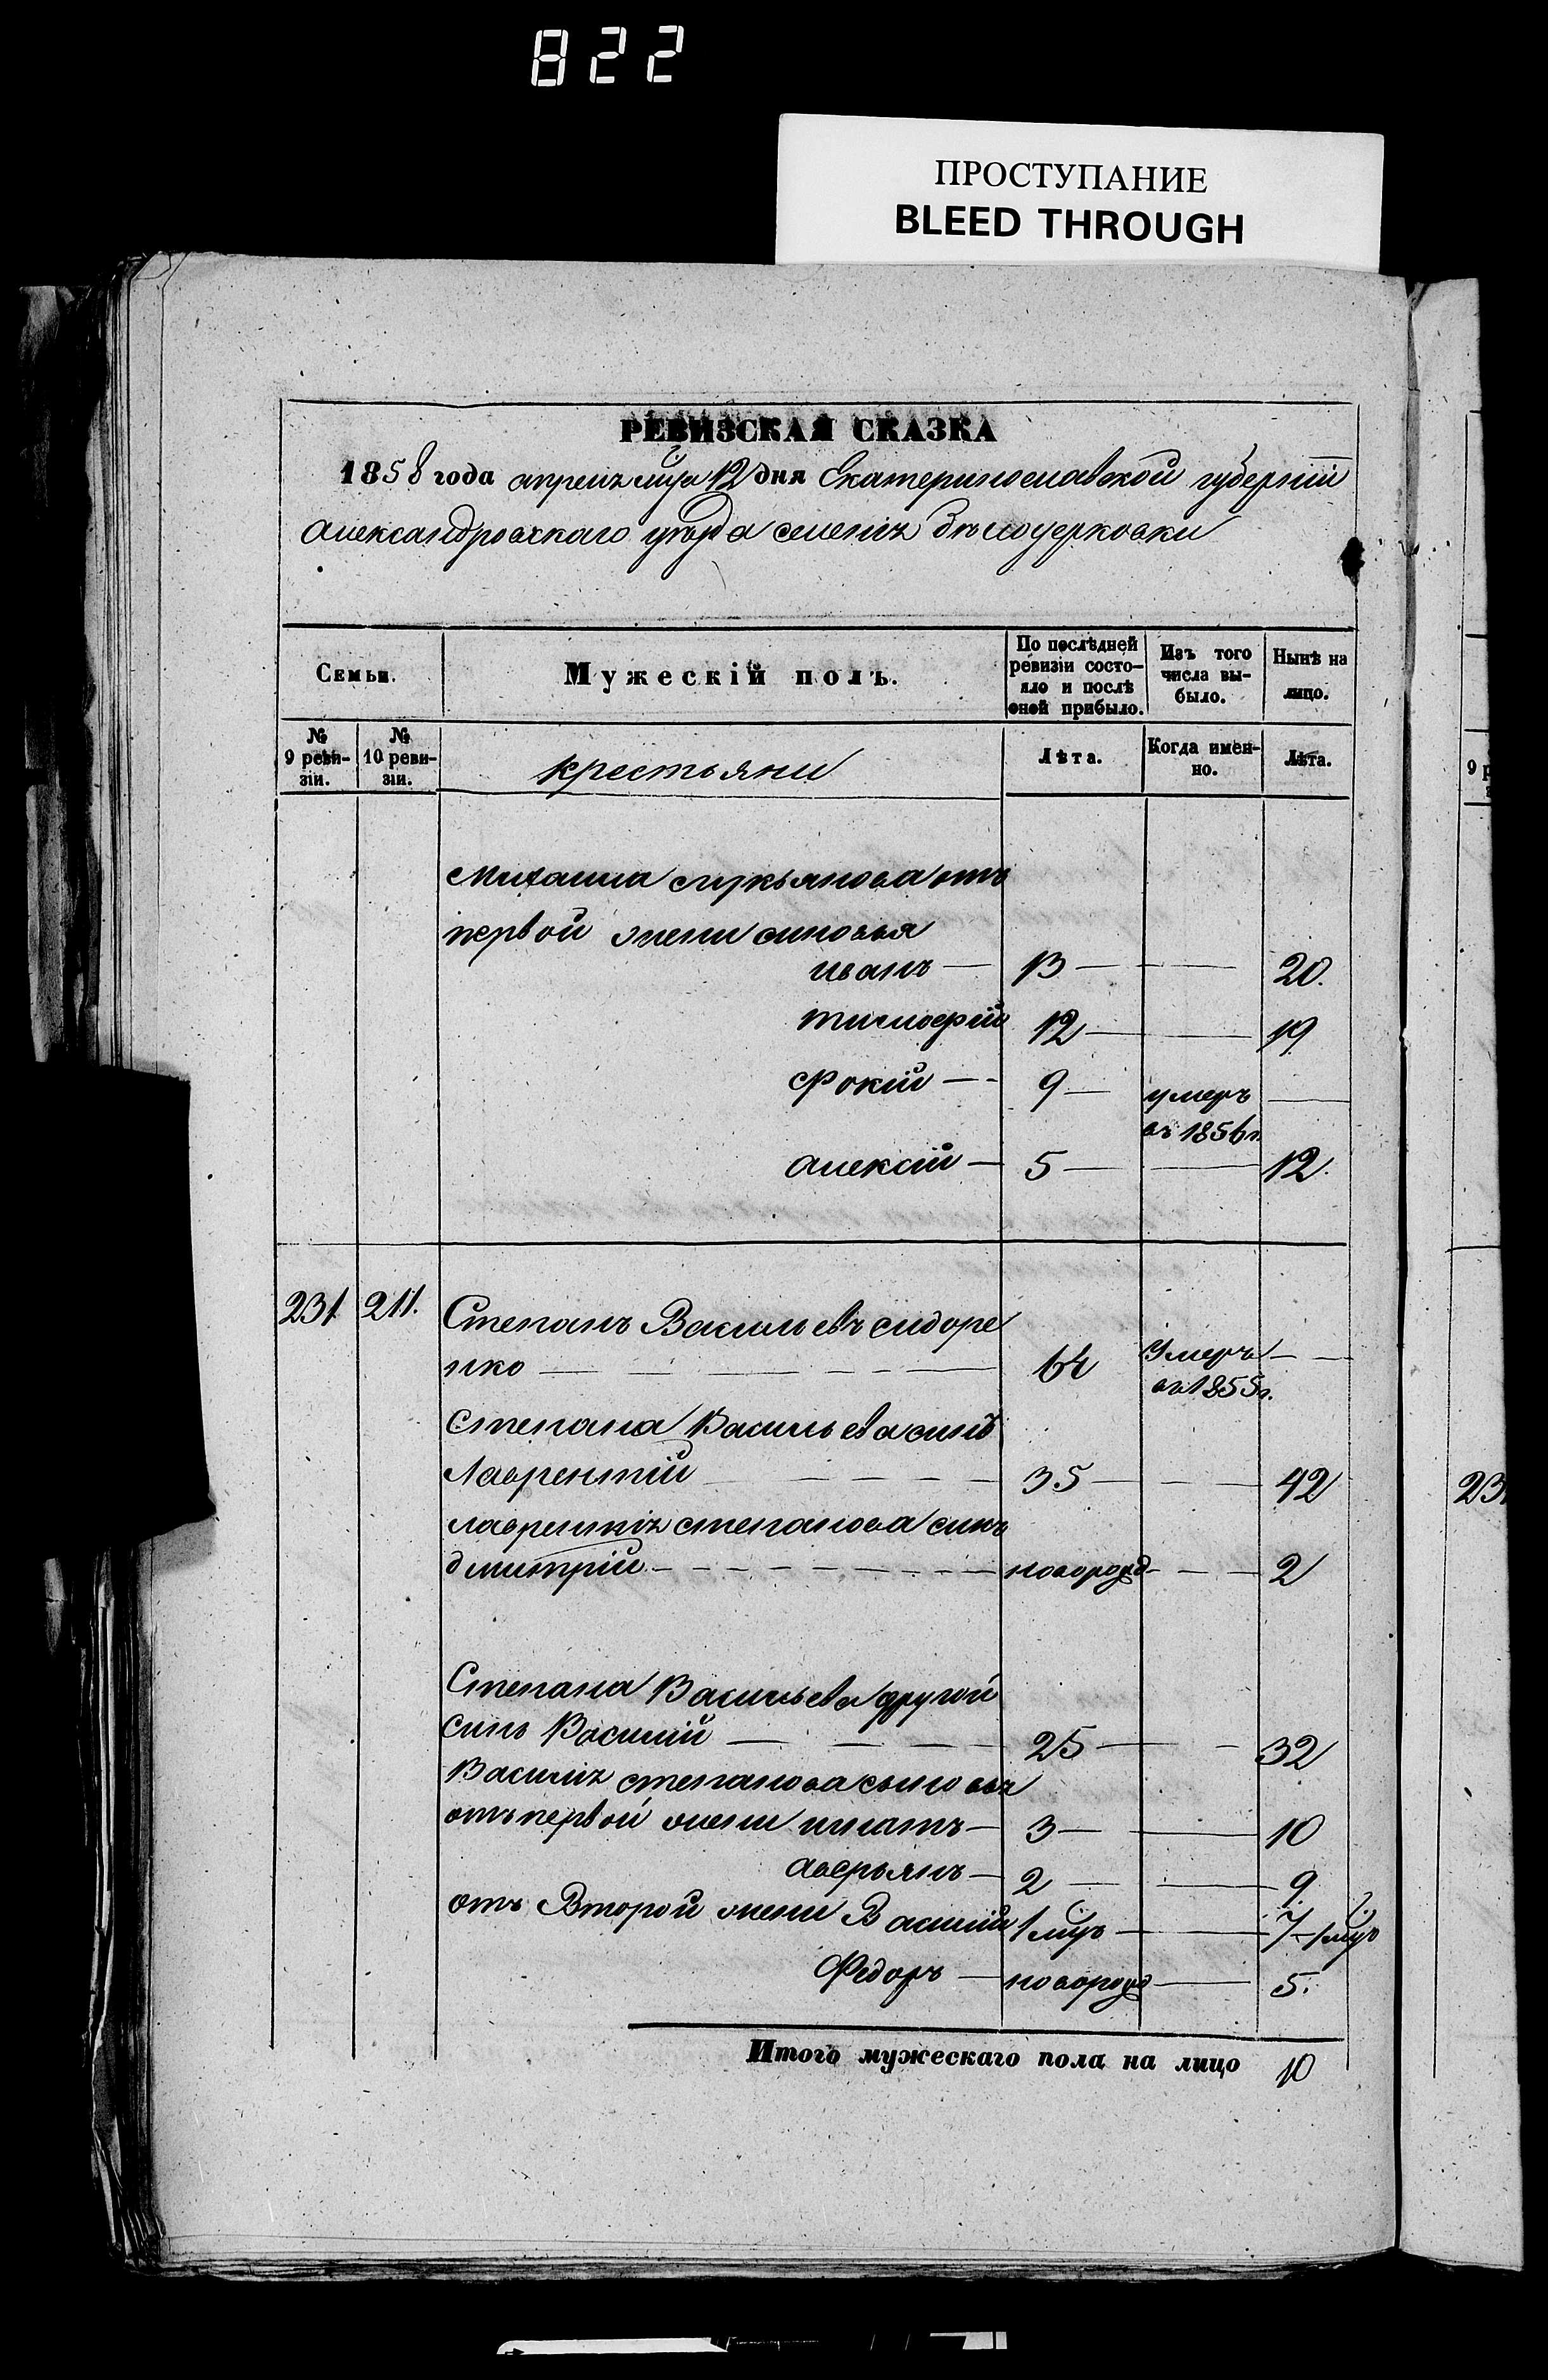 822
ПРОСТУПАНИЕ
BLEED THROUGH
РЕВИЗСКАЯ СКАЗКА
1858 года апрелъ мца 12 дня Екатеринославской губерніи
Александровскаго уѣзда Бѣлоцерковки
Семьи. Мужескій полъ. По послѣдней ревизіи состояло и послѣ оной прибыло. Изъ того числа выбыло. Нынѣ на лицо.
№ 9 ревизіи. № 10 ревизіи. крестьяни Лѣта. Когда именно. Лѣта.
9
Михаила Лукьянова отъ
первой жени синовья
иванъ — 13 — — 20.
тимофій 12 — — 19
Фокій — - 9 — умеръ —
въ 1856 г.
алексій — 5 — — 12.
231 211. Степанъ Васильевъ сидоре
нко — 64 Умеръ — —
въ 1855 г.
Степана Васильева синъ
Лаврентій — 35 — — 42
лаврентія степанова синъ
дмитрій — новорожд — — 2
23
Степана Васильева другой
синъ Василій — 25 — — 32
Василія степанова сыновья
отъ первой жени игнатъ — 3 — — 10
аверьянъ — 2 — — 9.
отъ Второй жени Василій 1 мцъ — — 7 - 1 мцъ
Федоръ — новорожд — 5.
Итого мужескаго пола на лицо 10